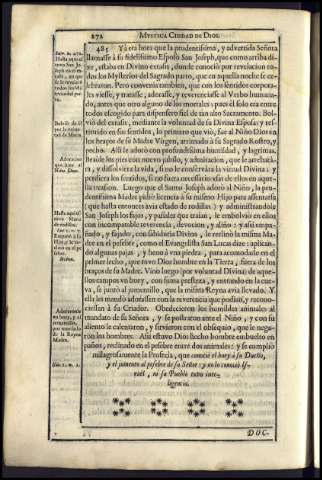 272
MYSTICA CIUDAD DE DIOS.
485 Yà era hora que la prudentissima, y advertida Señora
llamasse à su fidelissimo Esposo San Joseph, que como arriba di-
xe, estaba en Divino extasis, donde conoció por revelacion to-
dos los Mysterios del Sagrado parto, que en aquella noche se ce-
lebraron. Pero convenia tambien, que con los sentidos corpora-
les viesse, y tratasse, adorasse, y reverenciasse al Verbo humana-
do, antes que otro alguno de los mortales; pues él solo era entre
todos escogido para despensero fiel de tan alto Sacramento. Bol-
viò del extasis, mediante la voluntad de su Divina Esposa; y res-
tituido en sus sentidos, lo primero que viò, fue al Niño Dios en
los braços de su Madre Virgen, arrimado à su Sagrado Rostro, y
pecho. Alli le adorò con profundissima humildad, y lagrimas.
Besóle los pies con nuevo jubilo, y admiracion, que le arrebatà-
ra, y disolviera la vida, si no le conservàra la virtud Divina: y
perdiera los sentidos, si no fuera necessario usar de ellos en aque-
lla ocasion. Luego que el Santo Joseph adorò al Niño, la pru-
dentissima Madre pidiò licencia à su mismo Hijo para assentarse
(que hasta entonces avia estado de rodillas) y administrandole
San Joseph los fajos, y pañales que traìan, le embolviò en ellos
con incomparable reverencia, devocion, y aliño: y assi empaña-
do, y fajado, con sabiduria Divina, le reclinó la misma Ma-
dre en el pesebre, como el Evangelista San Lucas dize: aplican-
do algunas pajas, y heno à una piedra, para acomodarle en el
primer lecho, que tuvo Dios hombre en la Tierra, fuera de los
braços de su Madre. Vino luego (por voluntad Divina) de aque-
llos campos un buey, con suma presteza, y entrando en la cue-
va, se juntó al jumentillo, que la misma Reyna avia llevado. Y
ella les mandó adorassen con la reverencia que podian, y recono-
ciessen à su Criador. Obedecieron los humildes animales al
mandato de su Señora, y se postraron ante el Niño, y con su
aliento le calentaron, y sirvieron con el obsequio, que le nega-
ron los hombres. Assi estuvo Dios hecho hombre embuelto en
paños, reclinado en el pesebre entre dos animales: y se cumpliò
milagrosamente la Profecia, que conoció el buey à su Dueño,
y el jumento al pesebre de su Señor; y no lo conoció Is-
raèl, ni su Pueblo tuvo inte-
ligencia.
DOC-
Adoracion
que hizo al
Niño Dios.